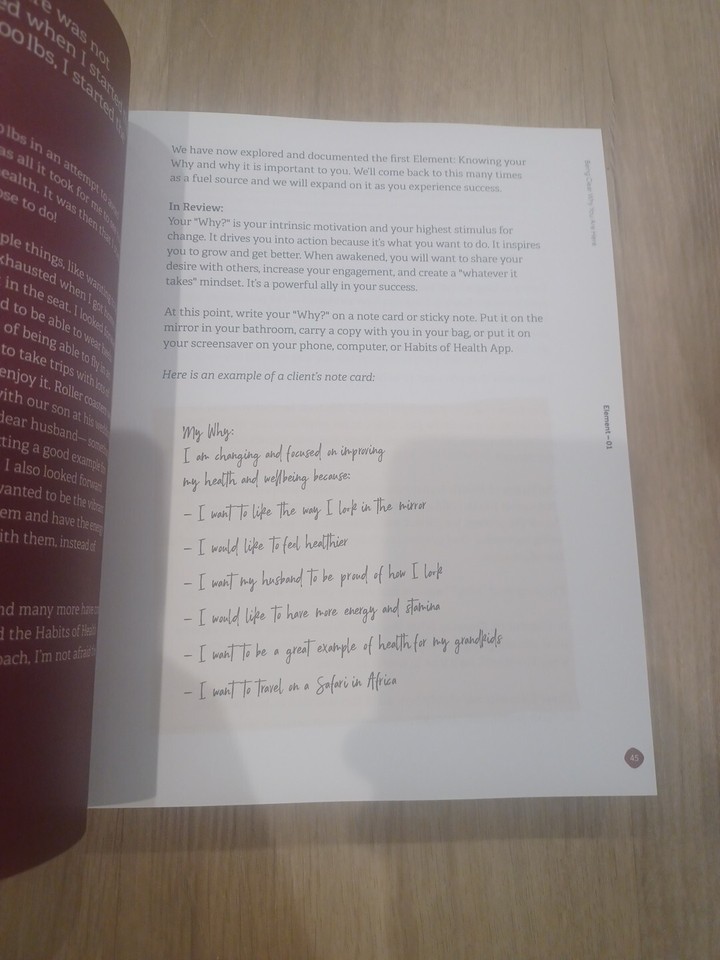 re was not
ed when I started
00lbs, I started the
lbs in an attempt to
as all it took for me to
ealth. It was then that I
ose to do!
ple things, like wanting
xhausted when I got
t in the seat. I looked
d to be able to wear
of being able to fly in
to take trips with
enjoy it. Roller coasters
with our son at his
dear husband—
tting a good example
I also looked forward
wanted to be the vibrant
em and have the energy
ith them, instead of
nd many more have
d the Habits of Health
oach, I'm not afraid
We have now explored and documented the first Element: Knowing your
Why and why it is important to you. We'll come back to this many times
as a fuel source and we will expand on it as you experience success.
In Review:
Your "Why?" is your intrinsic motivation and your highest stimulus for
change. It drives you into action because it's what you want to do. It inspires
you to grow and get better. When awakened, you will want to share your
desire with others, increase your engagement, and create a "whatever it
takes" mindset. It's a powerful ally in your success.
At this point, write your "Why?" on a note card or sticky note. Put it on the
mirror in your bathroom, carry a copy with you in your bag, or put it on
your screensaver on your phone, computer, or Habits of Health App.
Here is an example of a client's note card:
My Why:
I am changing and focused on improving
my health and wellbeing because:
– I want to like the way I look in the mirror
– I would like to feel healthier
– I want my husband to be proud of how I look
– I would like to have more energy and stamina
– I want to be a great example of health for my grandkids
– I want to travel on a Safari in Africa
Element – 01
45